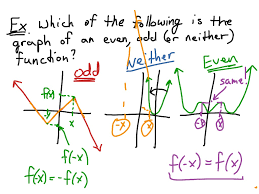 Ex: Which of the following is the
graph of an even, odd (or neither)
function?
odd
Neither
Even
f(x)
x
f(-x)
f(x) = -f(x)
-x
x
same!
-x
x
f(-x) = f(x)